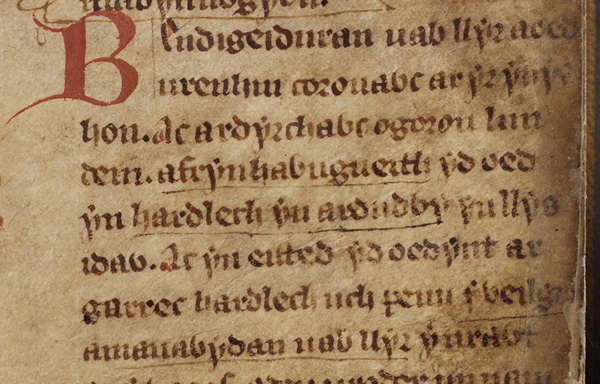 Bendigeiduran uab llyr a oed
urenhin coronabc ar yr ynys
hon. Ac ardyrchabc o goron lun
dein. a frynhabngueith yd oed
yn hardlech yn ardudby yn llys
idab. Ac yn eisted yd oedynt ar
garrec hardlech uch penn y beilgi
a manabydan uab llyr y urabt